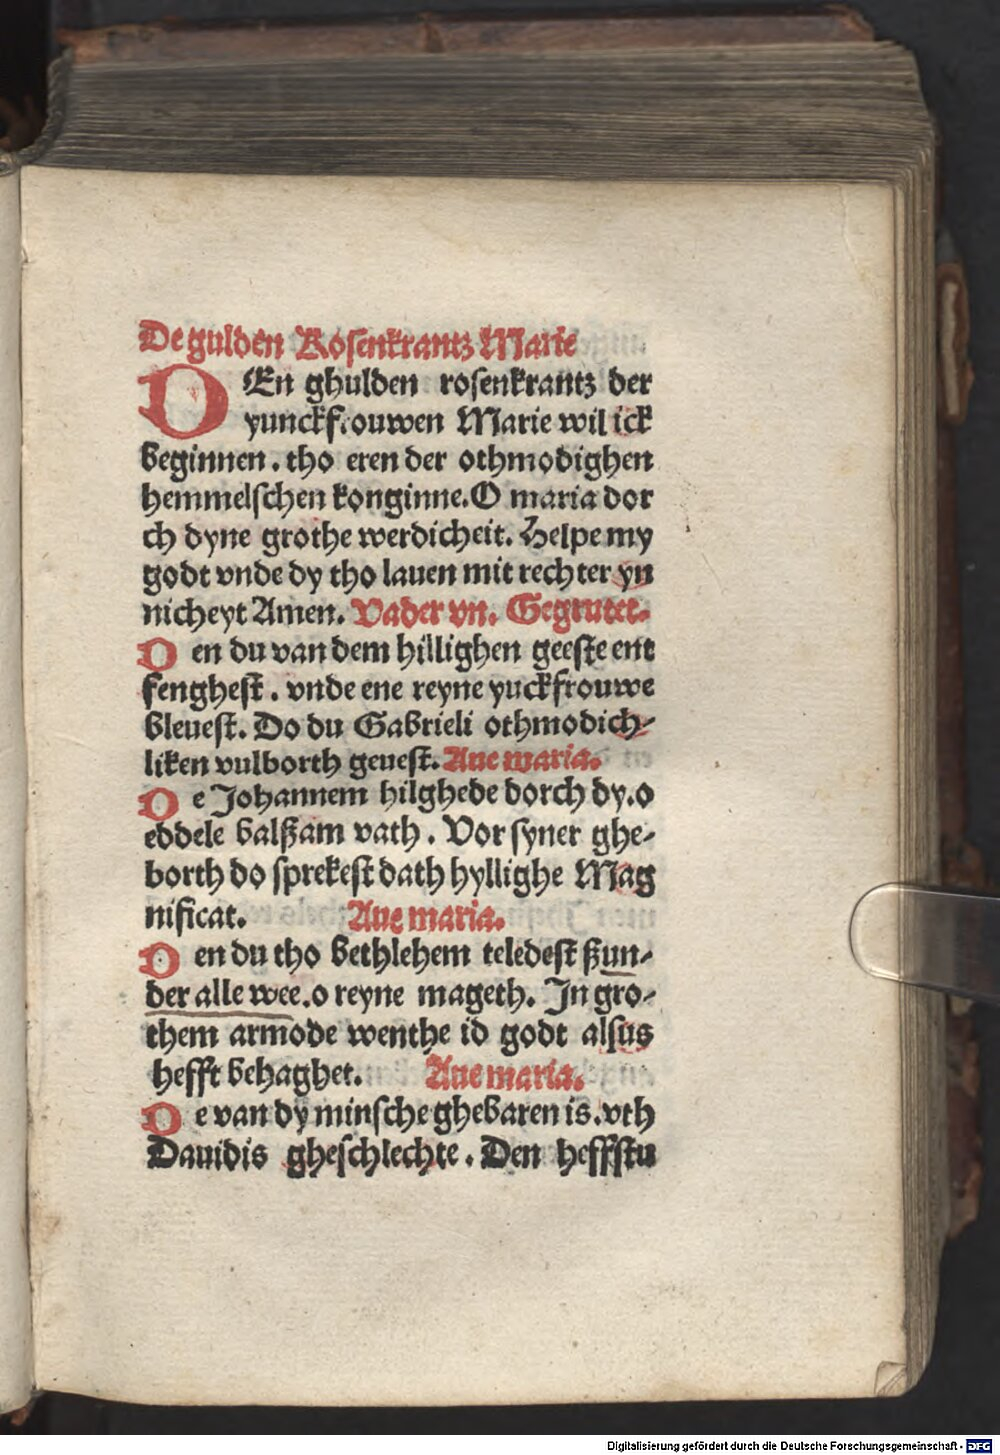 De gulden Rosenkrantz Marie
DEn ghulden rosenkrantz der
yunckfrouwen Marie wil ick
beginnen. tho eren der othmodighen
hemmelschen konginne. O maria dor
ch dyne grothe werdicheit. Helpe my
godt vnde dy tho lauen mit rechter yn
nicheyt Amen. Vader vn. Gegrutet.
Den du van dem hillighen geeste ent
fenghest. vnde ene reyne yuckfrouwe
bleuest. Do du Gabrieli othmodich-
liken vulborth geuest. Aue maria.
De Johannem hilghede dorch dy. o
eddele balßam vath. Vor syner ghe-
borth do sprekest dath hyllighe Mag
nificat. Aue maria.
Den du tho bethlehem teledest ßun-
der alle wee. o reyne mageth. In gro-
them armode wenthe id godt alsus
hefft behaghet. Aue maria.
De van dy minsche ghebaren is. vth
Dauidis gheschlechte. Den heffstu
Digitalisierung gefördert durch die Deutsche Forschungsgemeinschaft - DFG